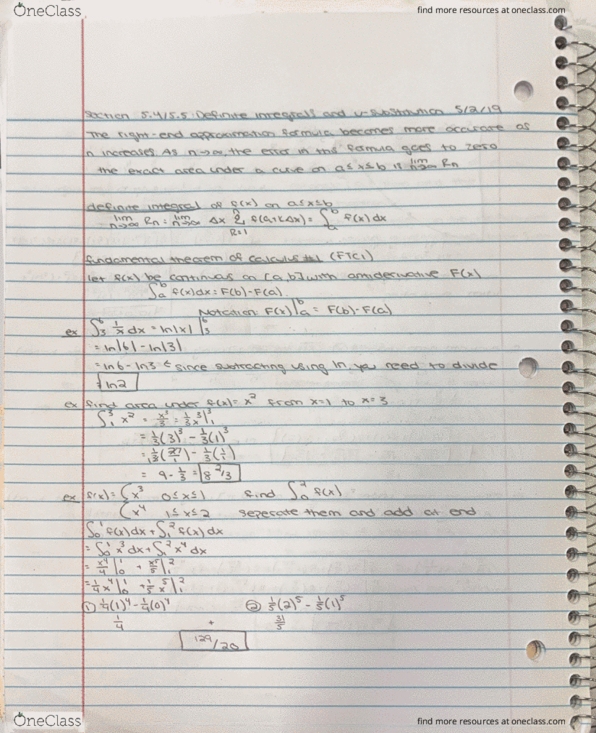 OneClass
find more resources at oneclass.com
Section 5.4/5.5: Definite integrals and u-substitution 5/2/19
The right-end approximation formula becomes more accurate as
n increases. As n→∞, the error in this formula goes to zero
the exact area under a curve on a≤x≤b is lim n→∞ Rn
definite integral of f(x) on a≤x≤b
lim n→∞ Rn = lim n→∞ Δx Σ n k=1 f(a+kΔx) = ∫ₐᵇ f(x)dx
fundamental theorem of calculus #1 (FTC1)
let f(x) be continuous on [a,b] with antiderivative F(x)
∫ₐᵇ f(x)dx = F(b)-F(a).
Notation: F(x)|ₐᵇ = F(b)-F(a)
ex ∫₃⁶ 1/x dx = ln|x| |₃⁶
= ln|6| - ln|3|
= ln6 - ln3 ← since subtracting using ln, you need to divide
ln2
ex find area under f(x) = x² from x=1 to x=3
∫₁³ x² = x³/3 = 1/3 x³|₁³
= 1/3(3)³ - 1/3(1)³
= 1/3(27/1) - 1/3(1/1)
= 9 - 1/3 = 8 2/3
ex f(x) = { x³ 0≤x≤1 find ∫₀² f(x)
x⁴ 1≤x≤2 seperate them and add at end
∫₀¹ f(x)dx + ∫₁² f(x)dx
= ∫₀¹ x³ dx + ∫₁² x⁴ dx
= x⁴/4 |₀¹ + x⁵/5 |₁²
= 1/4 x⁴|₀¹ + 1/5 x⁵|₁²
① 1/4(1)⁴ - 1/4(0)⁴ ② 1/5(2)⁵ - 1/5(1)⁵
1/4 + 31/5
129/20
OneClass
find more resources at oneclass.com